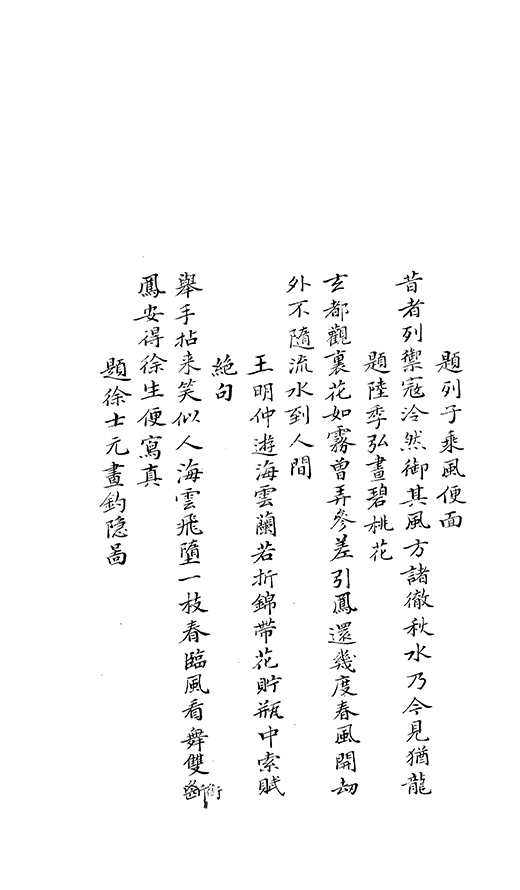 題列子乘風便面
昔者列禦寇泠然御其風方諸徹秋水乃今見猶龍
題陸季弘畫碧桃花
玄都觀裏花如霧曾弄參差引鳳還幾度春風開劫
外不隨流水到人間
王明仲遊海雲蘭若折錦帶花貯瓶中索賦
絶句
舉手拈来笑似人海雲飛墮一枝春臨風看舞雙
鳳安得徐生便寫真
題徐士元畫釣隐啚